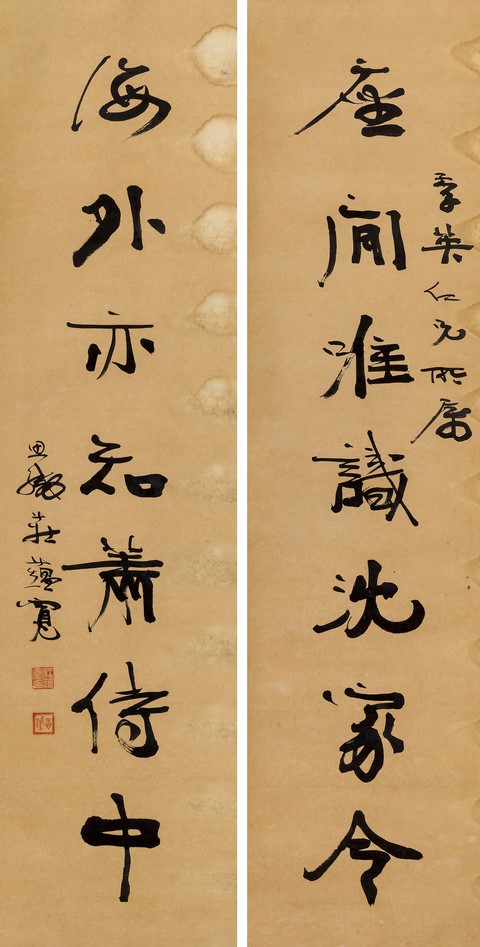 季英仁兄所屬
座間惟識沈家令
海外亦知蕭侍中
思緘莊蘊寬